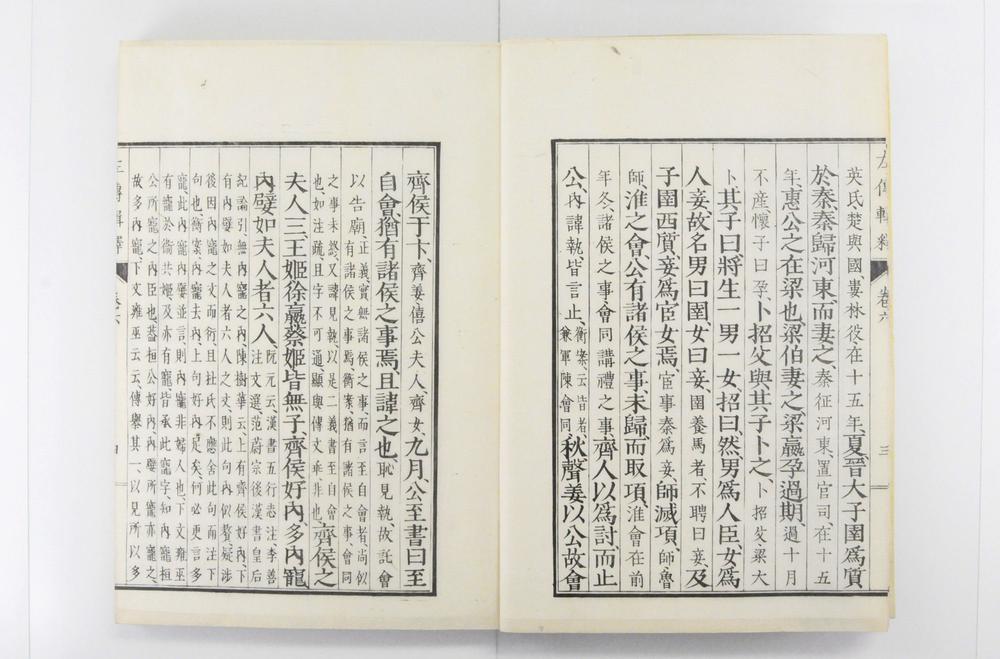 英氏楚與國、婁林役在十五年、夏、晉大子圉爲質
於秦、秦歸河東而妻之、秦征河東、置官司、在十五
年、惠公之在梁也、梁伯妻之、梁嬴孕過期、過十月
不産、懷子曰孕、卜招父與其子卜之、卜招父、梁大
卜、其子曰、將生一男一女、招曰、然、男爲人臣、女爲
人妾、故名男曰圉、女曰妾、圉養馬者、不聘曰妾、及
子圉西質、妾爲宦女焉、宦事秦爲妾、師滅項、師魯
師、淮之會、公有諸侯之事、未歸、而取項、淮會在前
年冬、諸侯之事、會同講禮之事、齊人以爲討、而止
公、內諱執皆言止、衡案、云皆者、兼軍陳會同、秋、聲姜以公故、會
左傳輯釋 卷六 三
齊侯于卞、齊姜、僖公夫人、齊女、九月、公至、書曰、至
自會、猶有諸侯之事焉、且諱之也、恥見執、故託會
以告廟、正義、實無諸侯之事、而言至自會者、尚似
有諸侯之事焉、衡案、猶有諸侯之事、會同
之事未終、又諱見執、以是二義書至自會
也、如注疏、且字不可通、顯與傳文乖、非也、齊侯之
夫人三、王姬、徐嬴、蔡姬、皆無子、齊侯好內、多內寵、
內嬖如夫人者六人、阮元云、漢書五行志注、李善
注文選范蔚宗後漢書皇后
紀論引、無內寵之內、陳樹華云、上有齊侯好內、下
有內嬖如夫人者六人之文、則此句內似贅、疑涉
後因內寵之文而衍、且杜氏不應舍此句而注下
句也、衡案、內寵去內、上句好內足矣、何必更言多
寵、此內寵內嬖並言、則內寵非婦人也、下文雍巫
有寵於衞共姬、及亦有寵、皆承此寵字、知內寵桓
公所寵之內臣也、蓋桓公好內、內嬖所寵、亦寵之、
故多內寵、下文雍巫云云、傳擧其一、以見所以多
左傳輯釋 卷六 四